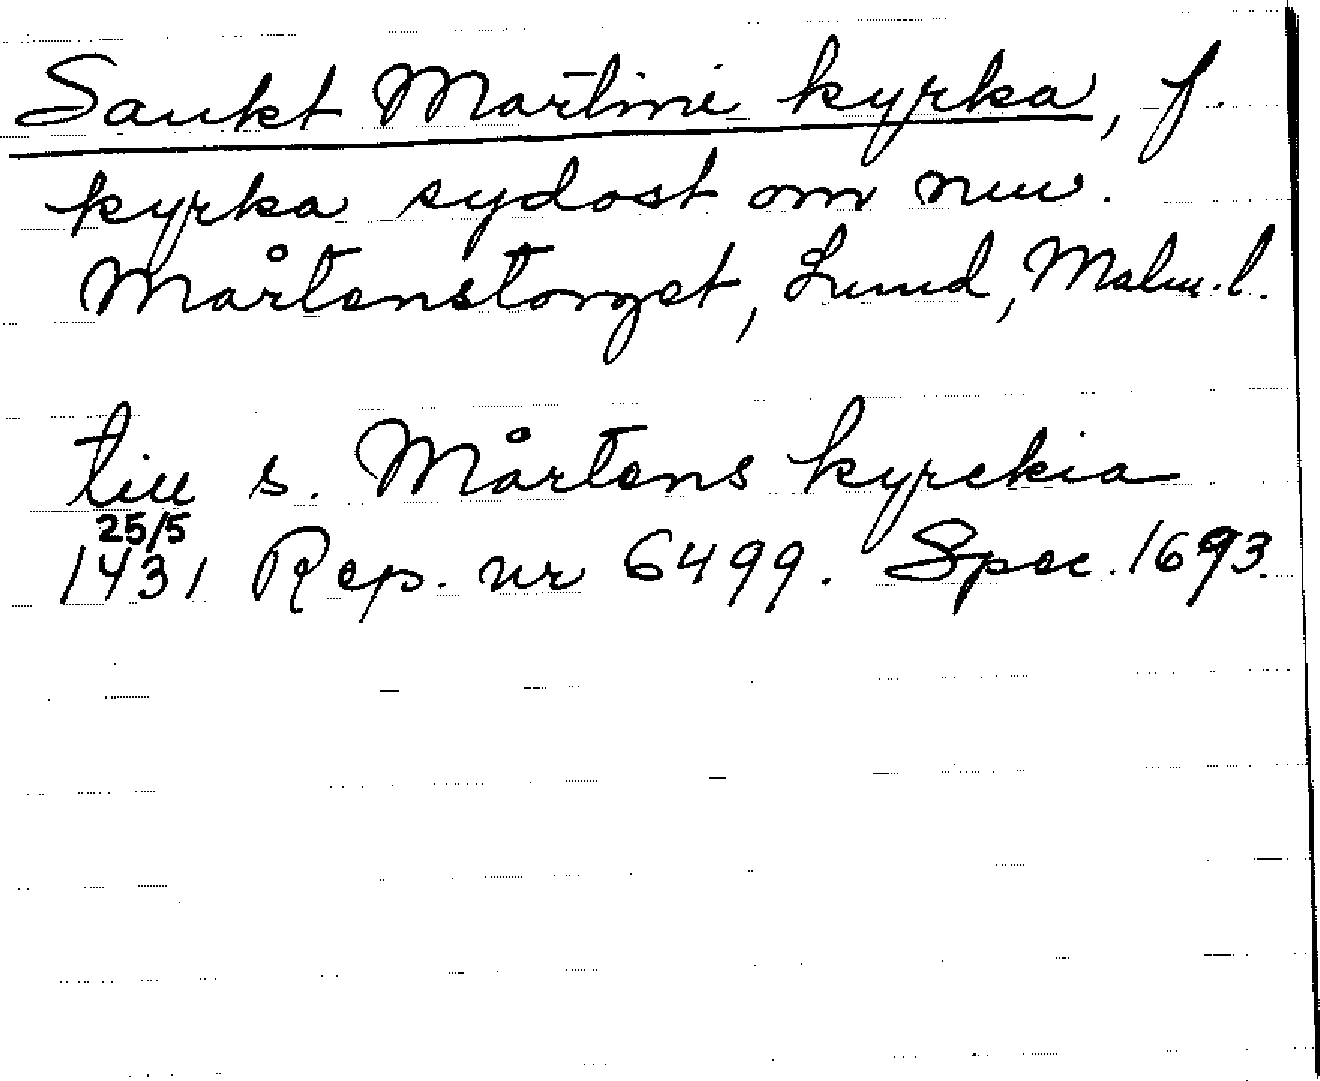 Sankt Martini kyrka, f.
kyrka sydost om nuv.
Mårtenstorget, Lund, Malm.l.
till s. Mårtens kyrckia
25/5
1431 Rep. nr 6499. Spec. 1693.